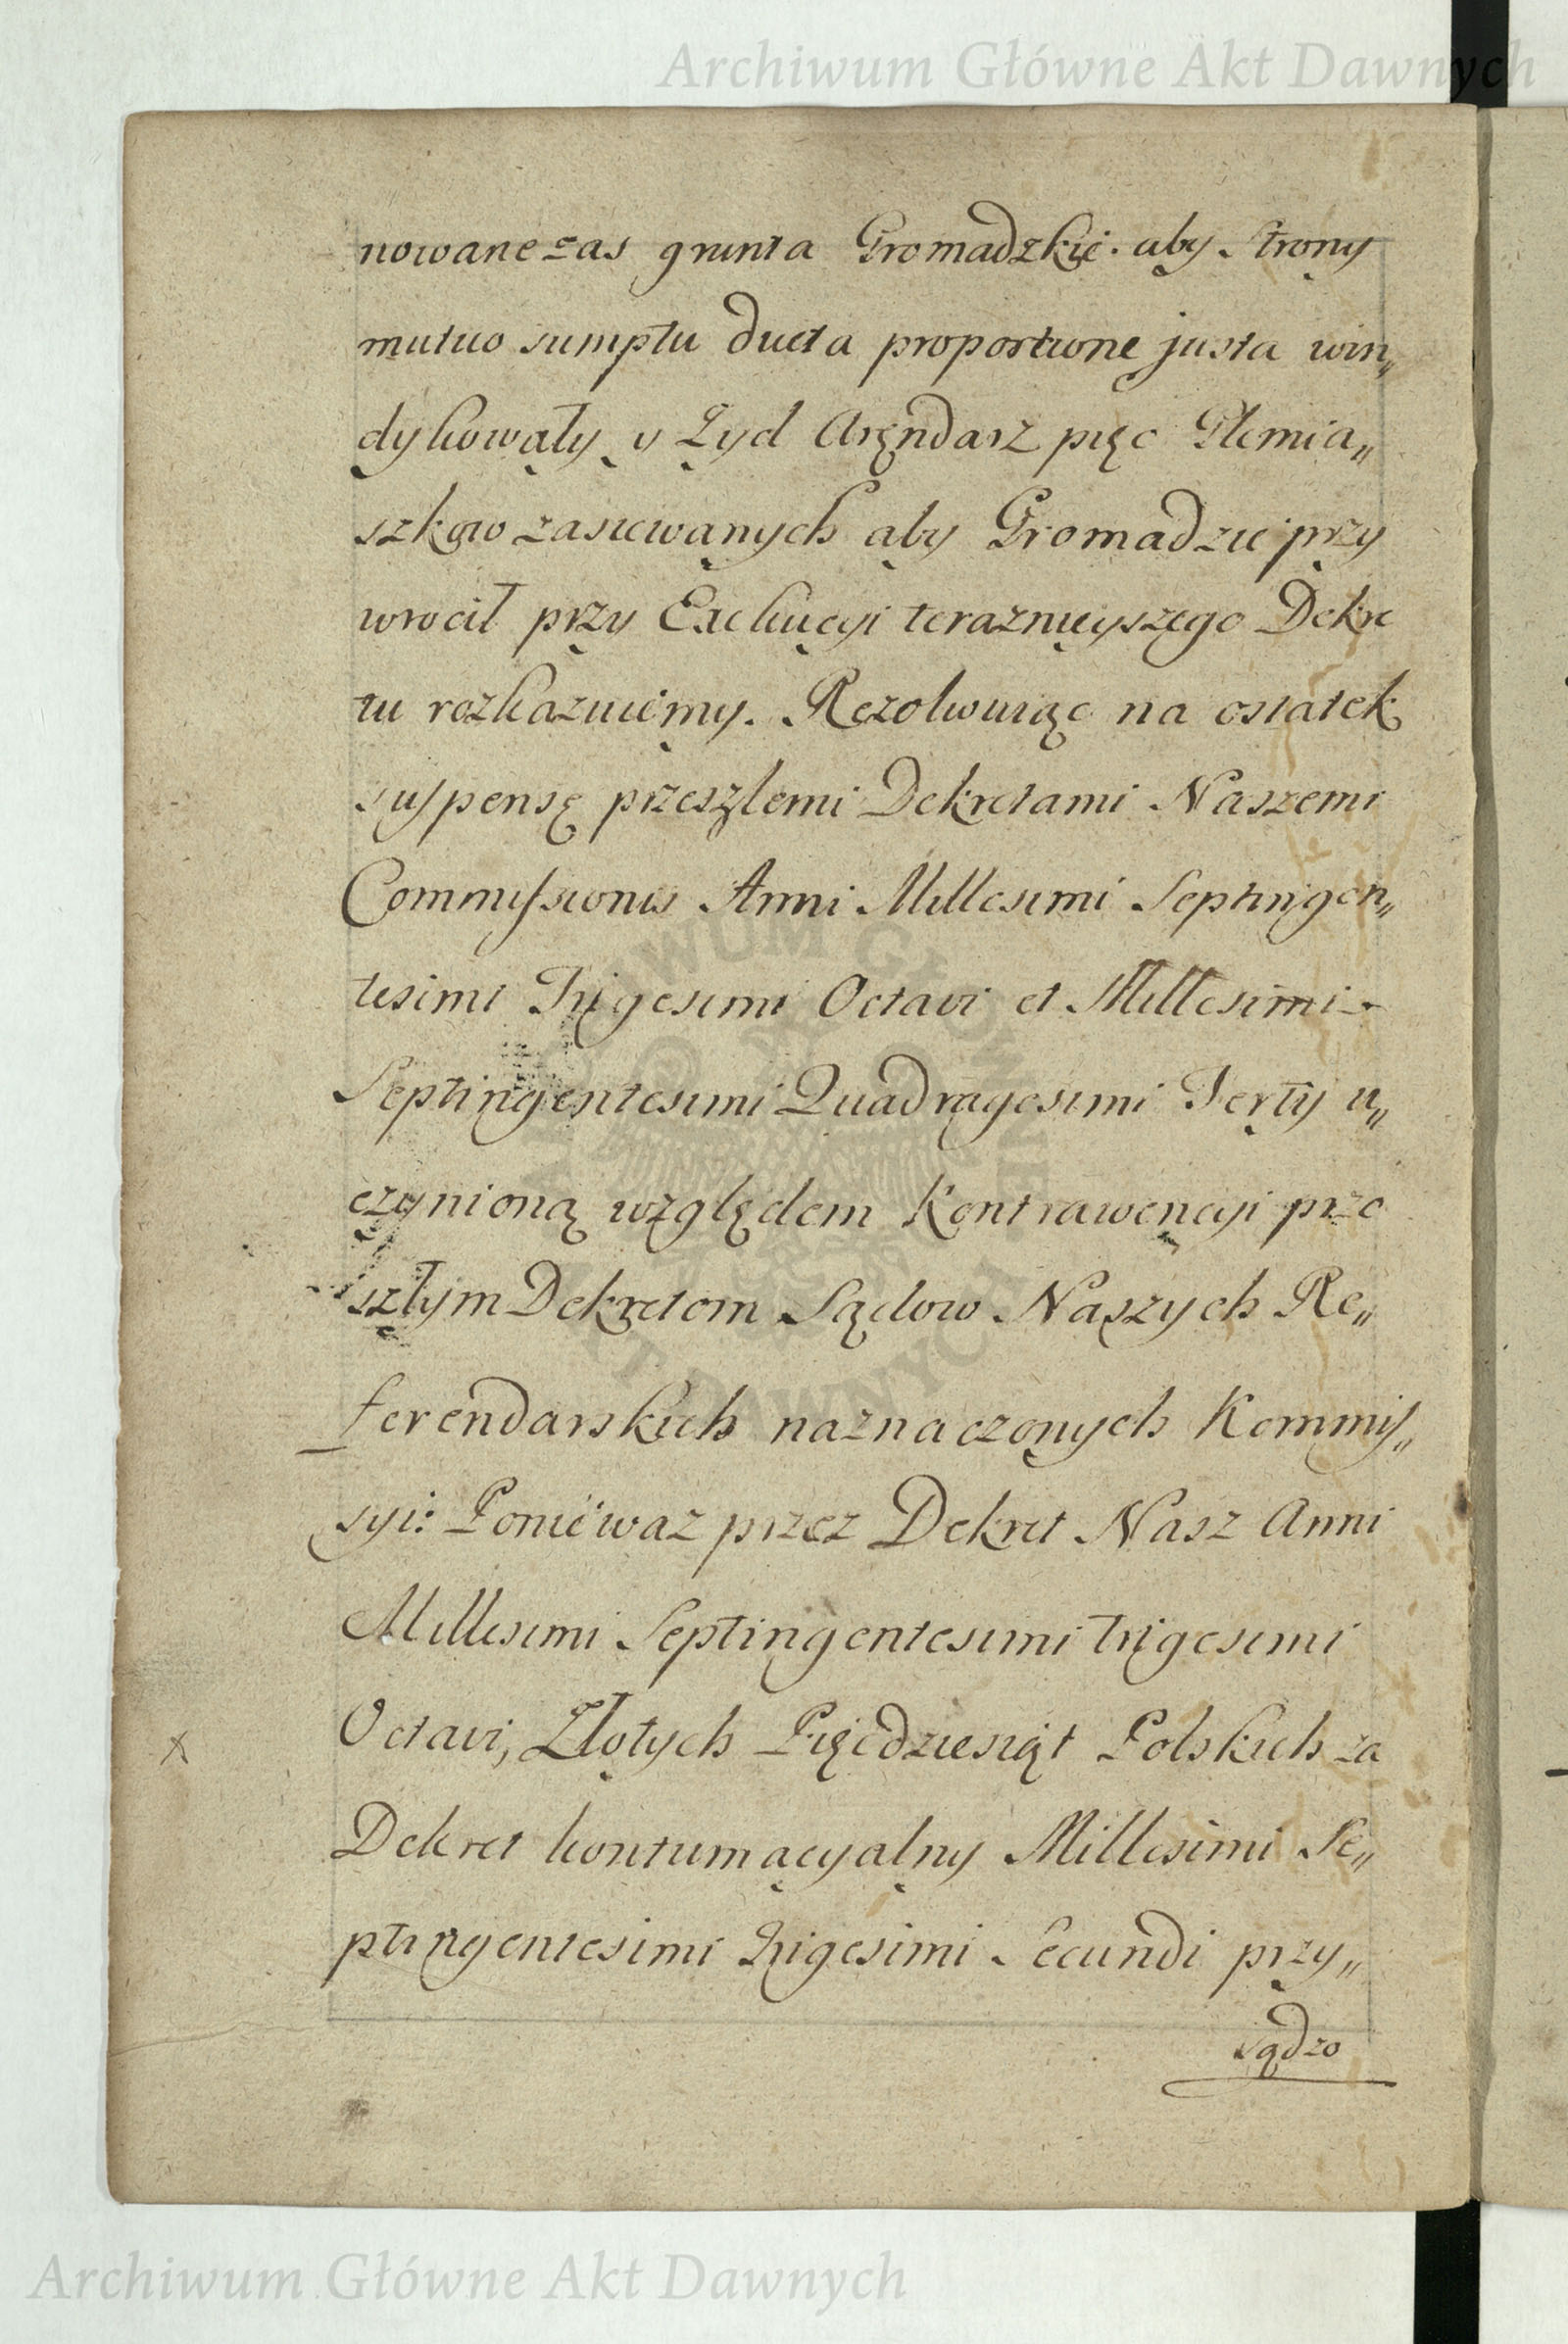 Archiwum Główne Akt Dawnych
nowane zas grunta Gromadzkie. aby Strony
mutuo sumptu ducta proportione justa win„
dykowały, y Zyd Aręndarz pięc Płemia„
szkow zasiewanych aby Gromadzie przy
wrocił przy Exekucyi teraznieyszego Dekre
tu rozkazuiemy. Rezolwuiąc na ostatek
suspensę przeszlemi Dekretami Naszemi
Commissionis Anni Millesimi Septingen„
tesimi Trigesimi Octavi et Millesimi
Septingentesimi Quadragesimi Tertÿ u„
czynioną względem Kontrawencyi prze
szłym Dekretom Sądow Naszych Re„
ferendarskich naznaczonych Kommis„
syi: Poniewaz przez Dekret Nasz Anni
Millesimi Septingentesimi trigesimi
Octavi, Złotych Pięcdziesiąt Polskich za
Dekret kontumacyalny Millesimi Se„
ptingentesimi Trigesimi Secundi przy„
sądzo
x
Archiwum Główne Akt Dawnych